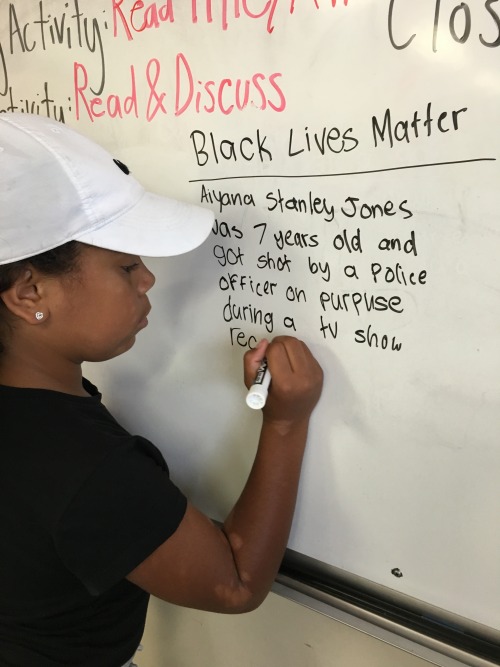 Activity: Read
Activity: Read & Discuss
Clos
Black Lives Matter
Aiyana Stanley Jones
was 7 years old and
got shot by a Police
officer on purpuse
during a tv show
rec